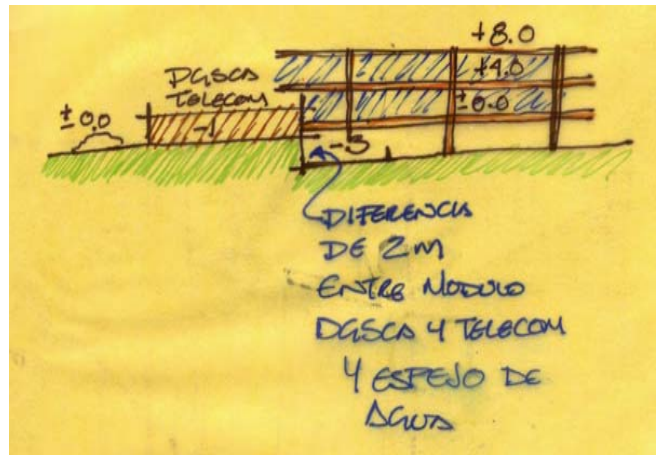 +8.0
+4.0
±0.0
DGSCA
TELECOM
± 0.0
-1
-3
DIFERENCIA
DE 2M
ENTRE MODULO
DGSCA Y TELECOM
Y ESPEJO DE
AGUA